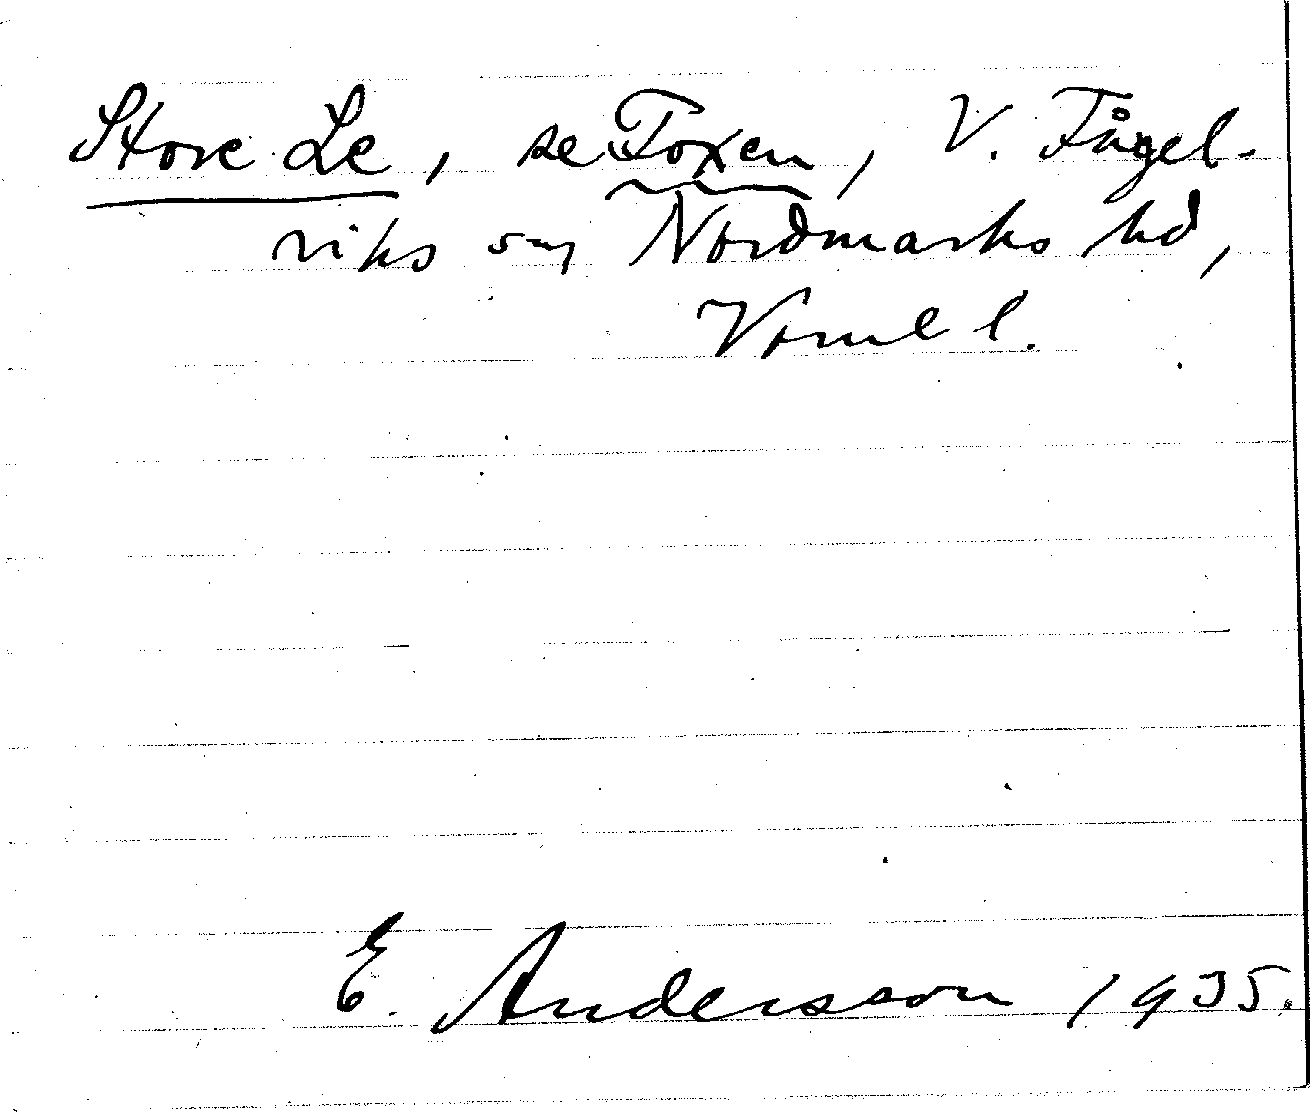 Store Le, se Foxen, V. Fågel-
viks sn, Nordmarks hd,
Værml l.
E. Andersson 1935.